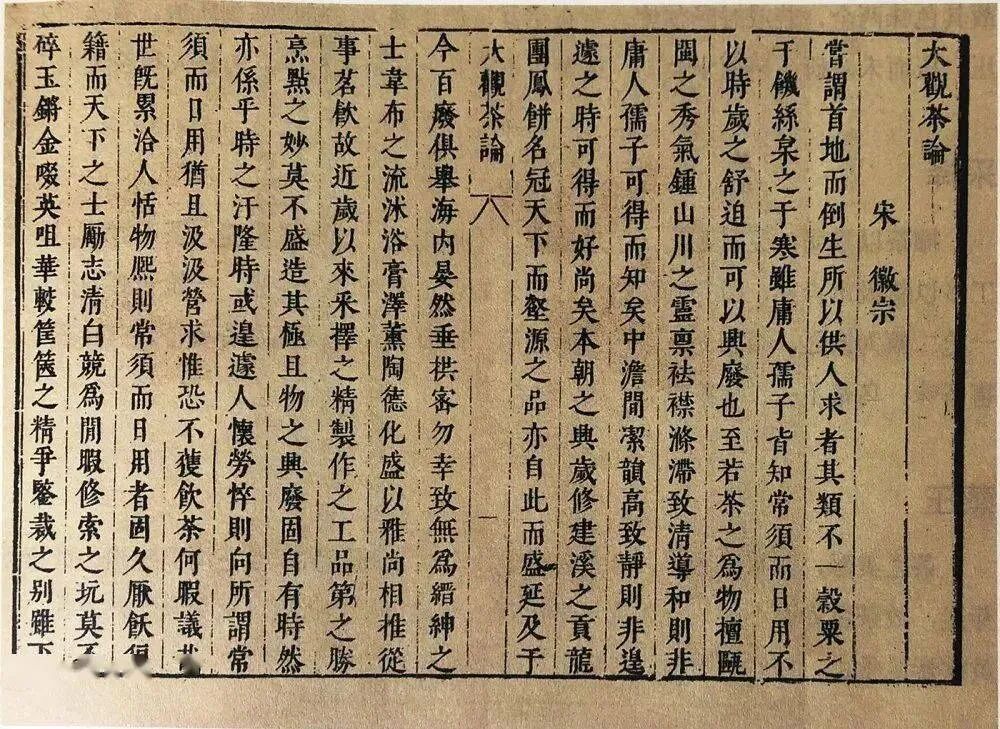 大觀茶論
宋 徽宗
嘗謂首地而倒生所以供人求者其類不一穀粟之
于饑絲枲之于寒雖庸人孺子皆知常須而日用不
以時歲之舒迫而可以興廢也至若茶之爲物檀甌
閩之秀氣鍾山川之靈禀袪襟滌滯致清導和則非
庸人孺子可得而知矣中澹閒潔韻高致靜則非遑
遽之時可得而好尚矣本朝之興歲修建溪之貢龍
團鳳餅名冠天下而壑源之品亦自此而盛延及于
大觀茶論 一
今百廢俱舉海内晏然垂拱密勿幸致無爲縉紳之
士韋布之流沐浴膏澤薰陶德化盛以雅尚相推從
事茗飲故近歲以來采擇之精製作之工品第之勝
烹點之妙莫不盛造其極且物之興廢固自有時然
亦係乎時之汙隆時或遑遽人懷勞悴則向所謂常
須而日用猶且汲汲營求惟恐不獲飲茶何暇議
世旣累洽人恬物熙則常須而日用者固久厭飫
籍而天下之士勵志清白競爲閒暇修索之玩莫不
碎玉鏘金啜英咀華較筐篋之精爭鑒裁之别雖下